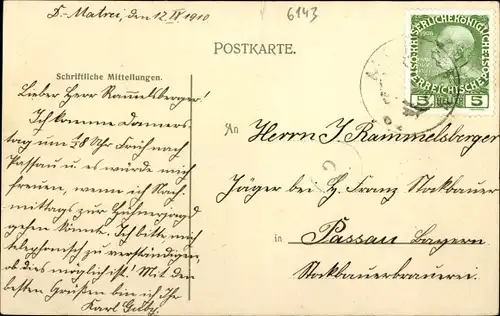 D.-Matrei, den 12 IX 1910
6143
POSTKARTE.
Schriftliche Mitteilungen.
Lieber Herr Rammelsberger!
Ich komme Donners-
tag um 1/28 Uhr Früh nach
Passau u. es würde mich
freuen, wenn ich Nach-
mittags zur Hühnerjagd
gehen könnte. Ich bitte, mich
telephonisch zu verständigen,
ob dies möglich ist! Mit den
besten Grüßen bin ich Ihr
Karl
KAISERLICHE KÖNIGLICHE
ÖSTERREICHISCHE
1908
5 5
An Herrn J. Rammelsberger
Jäger bei H. Franz Stockbauer
in Passau Bayern
Stockbauerbrauerei.